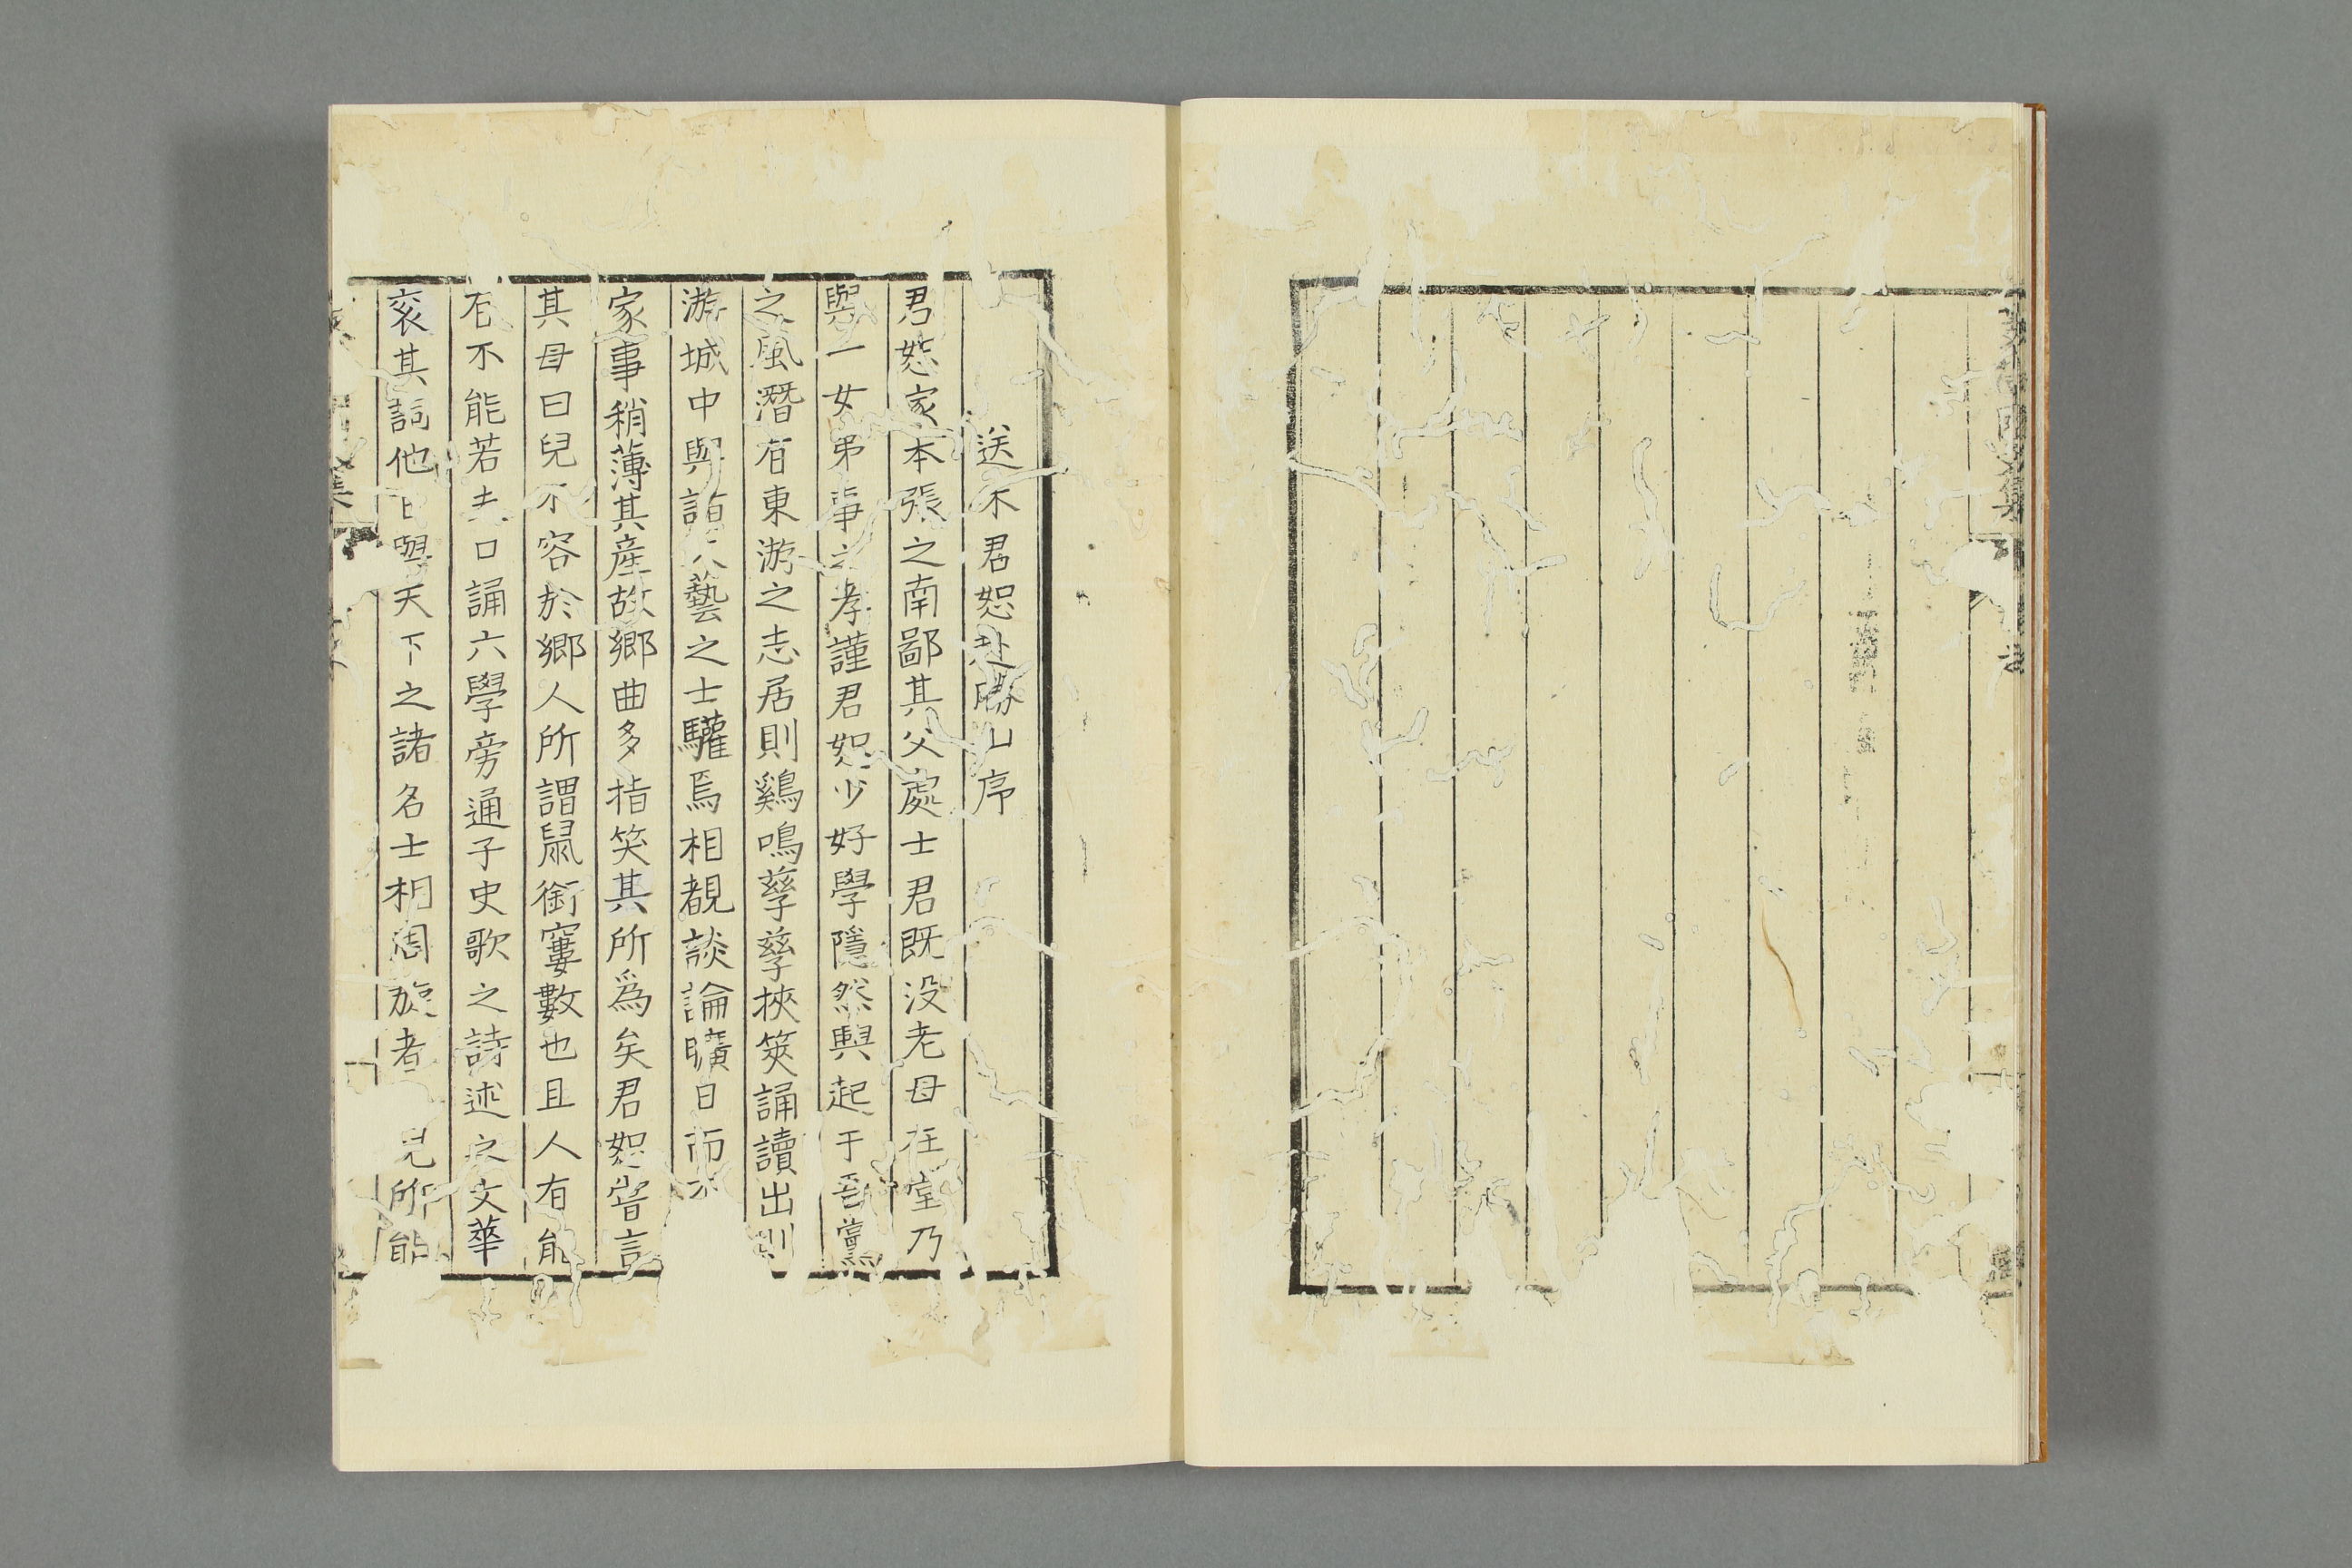 送不君恕赴勝山序
君恕家本張之南鄙其父處士君既没老母在堂乃
與一女弟事之孝謹君恕少好學隱然興起于吾黨
之風潛有東游之志居則鷄鳴孳孳挾筴誦讀出則
游城中與諸六藝之士驩焉相覩談論曠日而不
家事稍薄其産故鄉曲多指笑其所爲矣君恕嘗言
其母曰兒不容於鄉人所謂鼠銜窶數也且人有能
否不能若夫口誦六學旁通子史歌之詩述之文華
衮其詞他日與天下之諸名士相周旋者 兒所能